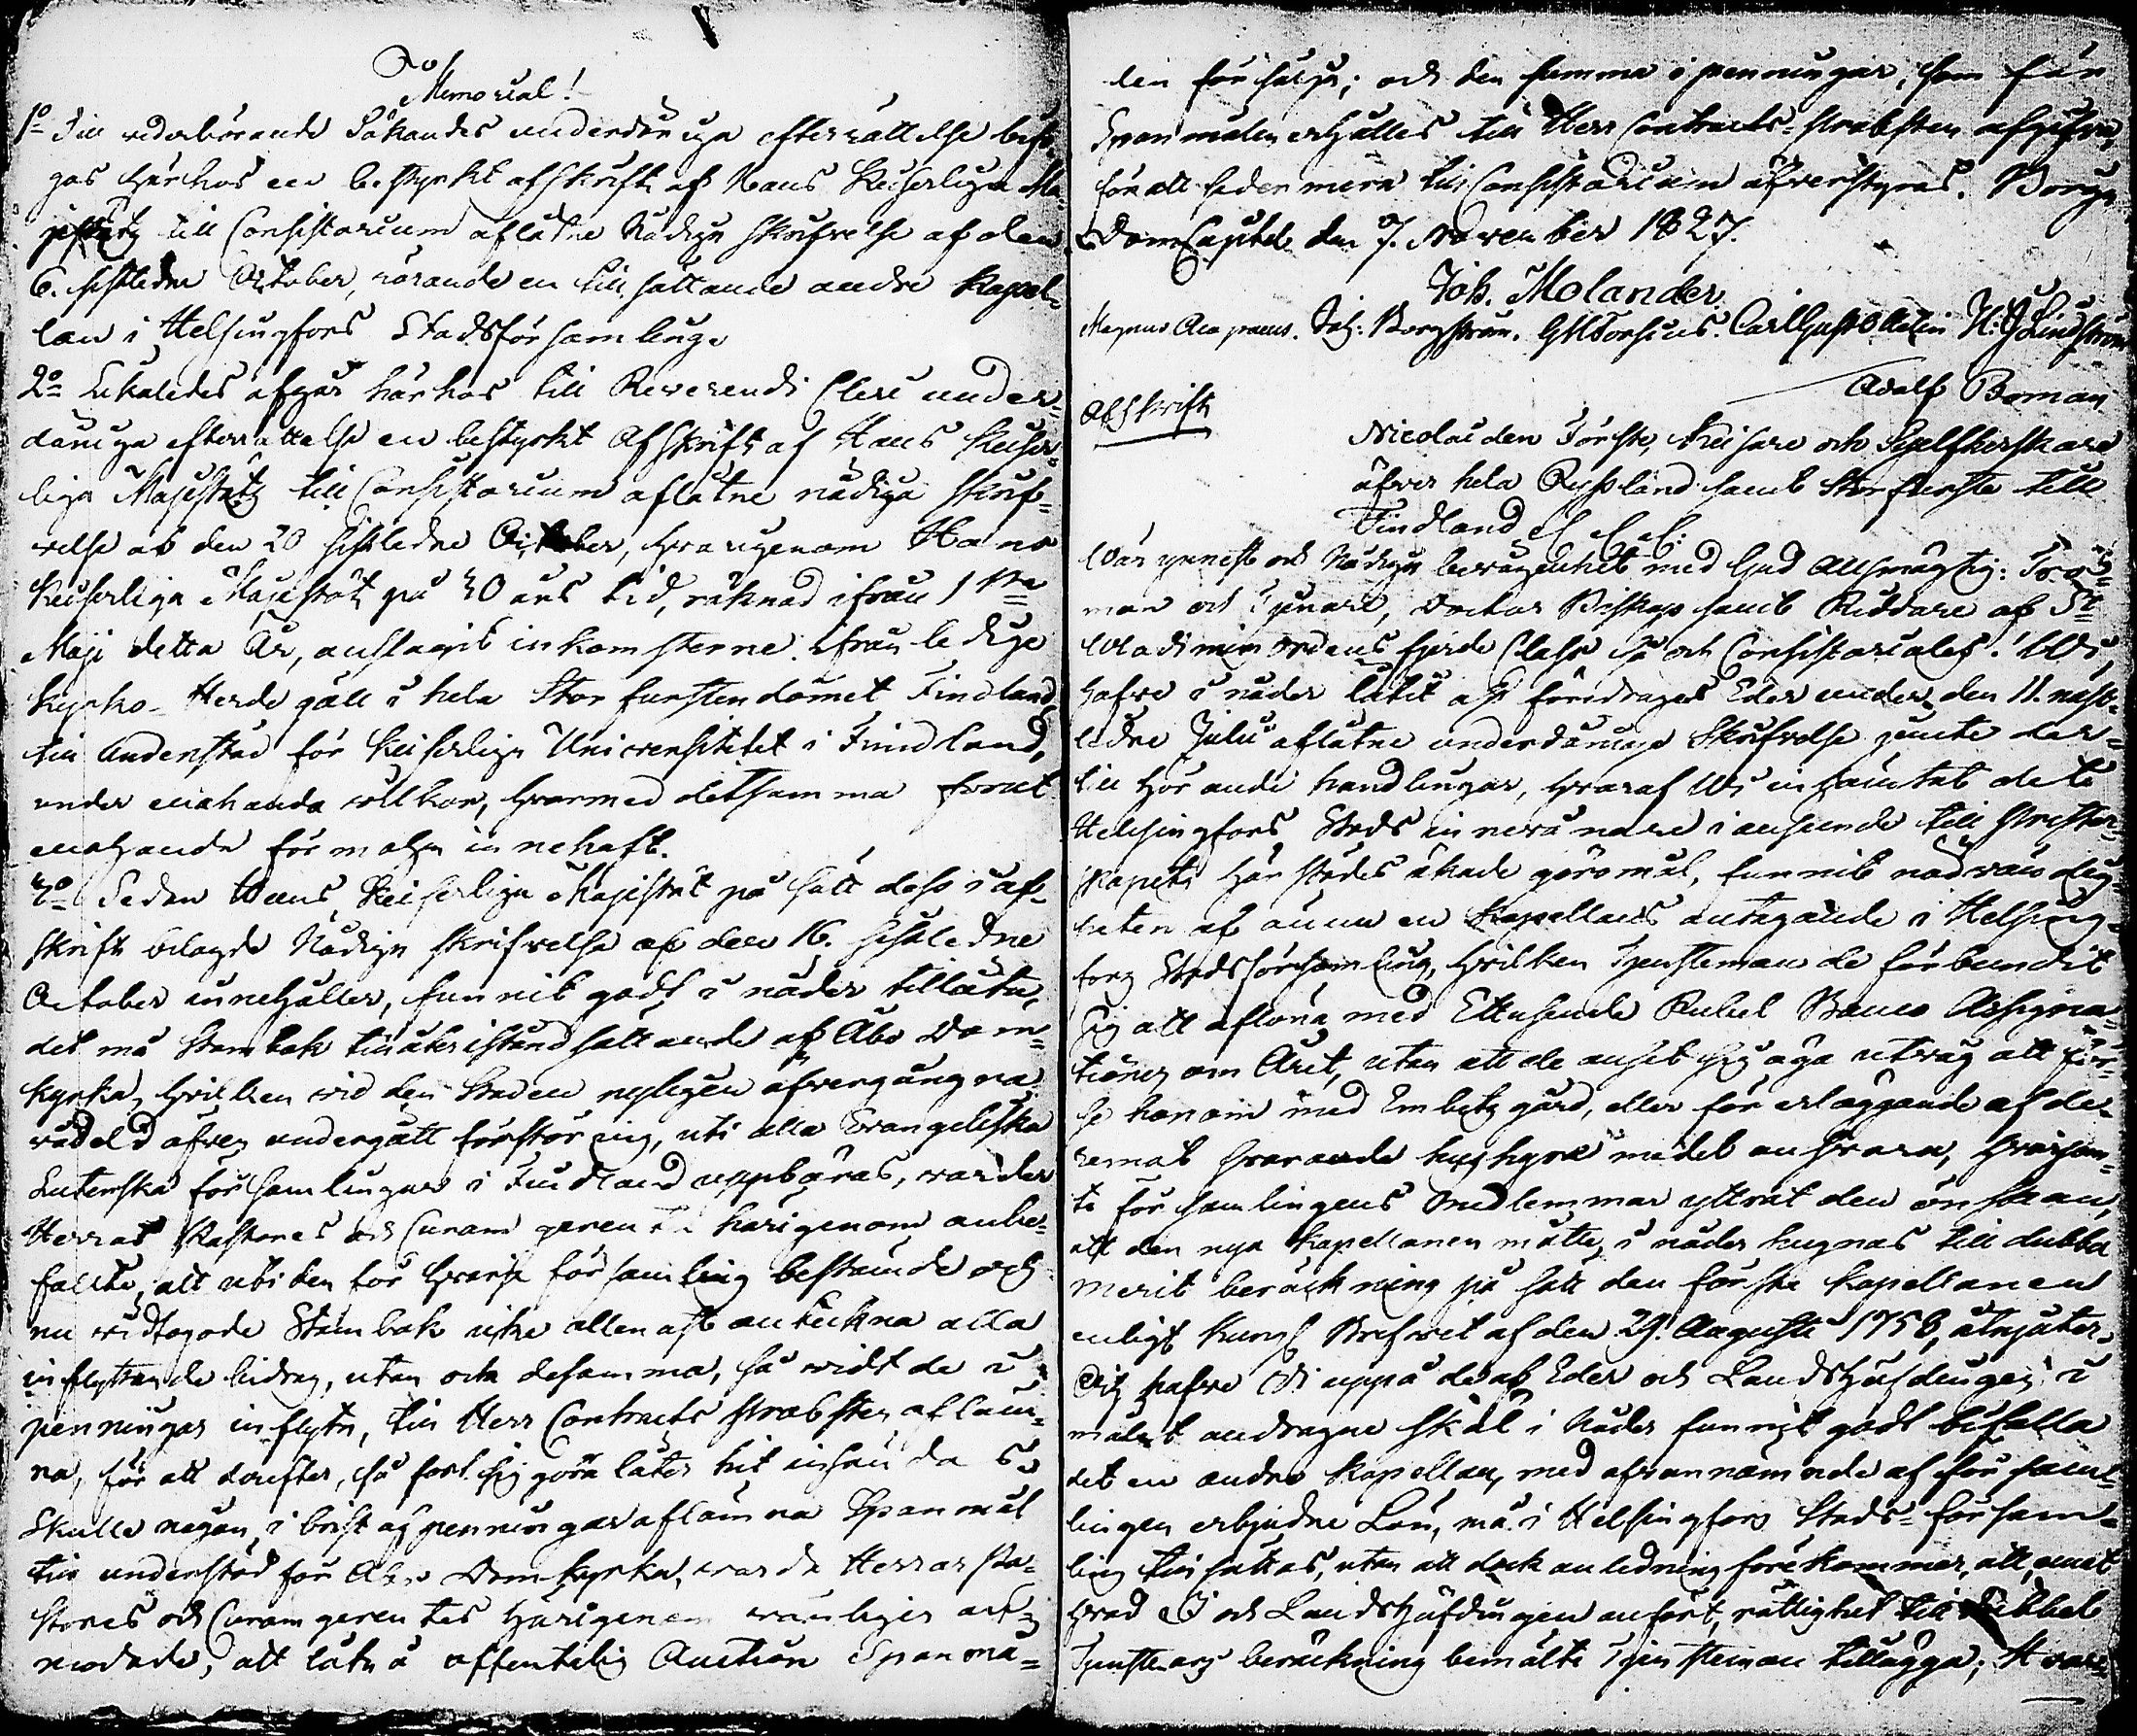 Memorial!
1o Till vederbörande Sökandes underdåniga efterrättelse bifo-
gas härhos en bestyrkt afskrift af Hans Keiserliga Ma-
jestäts till Consistorium aflåtne Nådiga skrifvelse af den
6. sistledne October, rörande en tillsättande andre Kapel-
lan i Helsingfors Stadsförsamling.
2o Likaledes afgår härhos till Reverendi Cleri under-
dåniga efterrättelse en bestyrkt Afskrift af Hans Keiser-
liga Majestäts till Consistorium aflåtne nådiga skrif-
velse af den 20 sistledne October, hvarigenom Hans
Keiserliga Majestät på 20 års tid, räknad ifrån 1sta
Maji detta År, anslagit inkomsterne ifrån lediga
Kyrko-Herde gäll i hela Storfurstendömet Finland,
till Understöd för Keiserliga Universitetet i Finland,
under enahanda villkor, hvarmed detsamma förut
enahanda förmohn innehaft.
3o Sedan Hans Keiserliga Majestät på sätt dess i af-
skrift bilagde Nådiga skrifvelse af den 16. sistledne
October innehåller, funnit godt i nåder tillåta,
det må Stambok till återiståndsättande af Åbo Dom-
kyrka, hvilken vid den Staden nyligen öfvergångna
vådeld äfven undergått förstöring, uti alla Evangeliska
Luterska församlingar i Finland uppbäras, varder
Herrar Pastores och Curam gerentes härigenom anbe-
fallte, att uti den för hvarje församling bestämde och
nu vidtagode Stambok icke allenast anteckna alla
inflytande bidrag, utan ock desamma, så vidt de i
penningar inflyta, till Herr Contracts Prosten aflem-
na, för att derefter, så fort sig göra låter hit insändas.
Skulle någon i brist af penningar aflämna Spanmål
till understöd för Åbo Domkyrka, varda Herrar Pa-
stores och Curam gerentes härigenom vänligen an-
modade, att låta å offentelig Auction Spanmå-
len försälja; och den summa i penningar, som för
Spanmålen erhålles till Herr Contracts-Prosten afgifva,
för att sedermera till Consistorium öfverstyras. Borgå
DomCapitel den 7. November 1827.
Joh. Molander
Magnus Alopaeus. Joh: Borgström. Carl Gust Ottelin
Adolf Boman
Afskrift
Nicolai den Förste, Keisare och Sjelfherskare
öfver hela Ryssland samt Storfurste till
Finland etc etc etc:
Vår ynnest och Nådiga bevågenhet med Gud Allsmägtig: Tro-
man och Tjenare, Doctor Biskop samt Riddare af St
Wladimirs ordens fjerde Class så ock Consistoriales! Wi
hafve i nåder låtit oss föredragas Eder under den 11. näst-
ledne Julii aflåtne underdåniga Skrifvelse jemte der-
till hörande handlingar, hvaraf Wi inhämtat det
Helsingfors Stads innevånare i anseende till Prester-
skapets härstädes ökade göromål, funnit nödvändig-
heten af ännu en Kapellans antagande i Helsing-
fors Stadsförsamling, hvilken Tjensteman de förbundit
sig att aflöna med Ettusende Rubel Banco Assigna-
tioner om Året, utan att de ansett sig äga utväg att för-
se honom med Embetsgård, eller för erläggande af de-
remot svarande hushyra medel anskaffa, hvarjem-
te församlingens medlemmar yttrat den önskan,
att den nya Kapellanen måtte i nåder hugnas till dubbel
Merit beräkning på sätt den förste Kapellanen
enligt Kungl Brefvet af den 29. Augusti 1758, åtnjuter.
Och hafve Vi uppå de af Eder och Landshöfdingen i
målet andragne skäl i Nåder funnit godt bifalla
det en andre Kapellan, med ofvannämnde af försam-
lingen erbjudne Lön, må i Helsingfors Stads-försam-
ling tillsättas, utan att dock anledning förekommer, att, emot
hvad I och Landshöfdingen anfört, rättighet till dubbel
Tjenstears beräkning bemälte Tjensteman tillägga; Hvar-